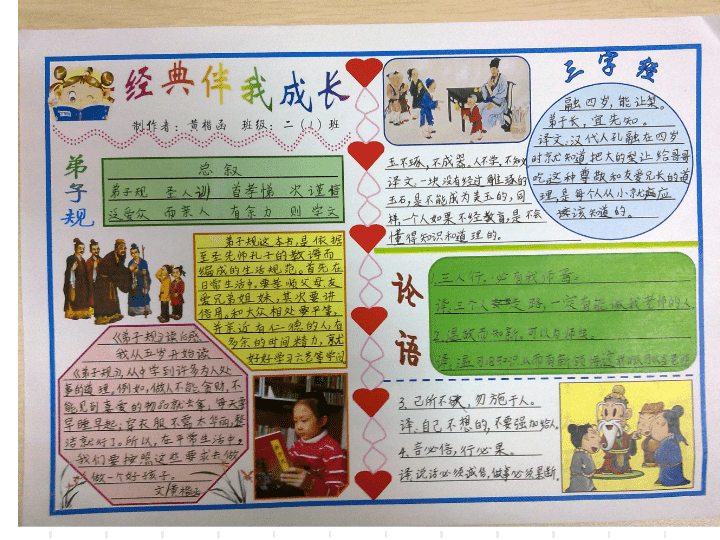 经典伴我成长
制作者：黄楷函 班级：二（1）班
弟子规
总叙
弟子规 圣人训 首孝悌 次谨信
泛爱众 而亲人 有余力 则学文
弟子规这本书，是依据
至圣先师孔子的教诲而
编成的生活规范。首先在
日常生活中，要孝顺父母，友
爱兄弟姐妹，其次要讲
信用，和大众相处要平等，
并亲近有仁德的人，有
多余的时间精力，就
好好学习六艺等学问
《弟子规》读后感
我从五岁开始读
《弟子规》，从中学到许多为人处
事的道理，例如，做人不能贪财，不
能见到喜爱的物品就去拿，每天要
早睡早起；穿衣服不需太华丽，整
洁就好了。所以，在平常生活中，
我们要按照这些要求去做
做一个好孩子。
文/黄楷函
三字经
玉不琢，不成器。人不学，不知义
译文：一块没有经过雕琢的
玉石，是不能成为美玉的，同
样，一个人如果不经教育，是不会
懂得知识和道理的。
融四岁，能让梨。
弟子长，宜先知。
译文：汉代人孔融在四岁
时就知道把大的梨让给哥哥
吃，这种尊敬和友爱兄长的道
理，是每个人从小就应
该知道的。
论语
1.三人行，必有我师焉。
译：三个人走路，一定有能做我老师的人
2.温故而知新，可以为师矣。
译：温习旧知识从而有新领悟
3.己所不欲，勿施于人。
译：自己不想的，不要强加给人。
4.言必信，行必果。
译：说话必须诚信，做事必须果断。